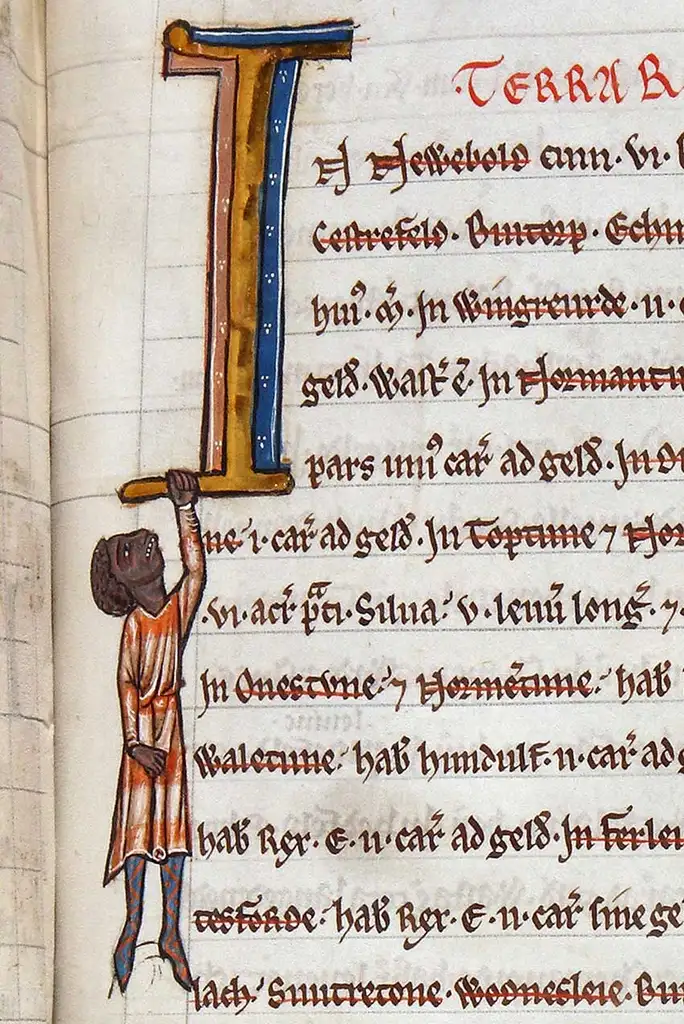 ·TERRA R
IN Newebold cum·vi·b
Cestrefeld·Buitorp·Echi
huiꝰ·m̃·In Wingreurde·ii·c
geld̃·Wast̃ ẽ·In Normantu
pars uniꝰ car̃ ad geld̃·In
ne·i·car̃ ad geld̃·In Toptune ⁊ Nor
·vi·acr̃ p̃ti·Silua·v·leuũ long̃·⁊·
In Onestune·⁊ Normẽtune·hab̃
Waletune·hab̃ hundulf·ii·car̃ ad g
hab̃ Rex·E·ii·car̃ ad geld̃·In Ferlei
tesforde·hab̃ Rex·E·ii·car̃ sine ge
lach·Snitretone·Wodnesleie·Bu